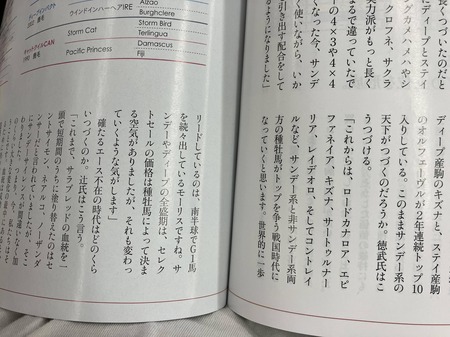 長くつづいたのだと
にディープとステイ
ングカメハメハやシ
クロフネ、サクラ
実力派がもっと長く
まるで違っていたで
の4×3や4×4
く使いながら、いか
なった今、サンデ
引き出す配合をして
ようになりました」
ディープ産駒のキズナと、ステイ産駒
のオルフェーヴルが2年連続トップ10
入りしている。このままサンデー系の
天下がつづくのだろうか。徳武氏はこ
うつづける。
「これからは、ロードカナロア、エピ
ファネイア、キズナ、サートゥルナー
リア、レイデオロ、そしてコントレイ
ルなど、サンデー系と非サンデー系両
方の種牡馬がトップを争う戦国時代に
なっていくと思います。世界的に一歩
ウインドインハーヘアIRE
Alzao
Burghclere
キャットクイルCAN
1990 鹿毛
Storm Cat
Storm Bird
Terlingua
Pacific Princess
Damascus
Fiji
リードしているのは、南半球でGⅠ馬
を続々出しているモーリスですね。サ
ンデーやディープの全盛期は、セレク
トセールの価格は種牡馬によって決ま
る空気がありましたが、それも変わっ
ていくような気がします」
確たるエース不在の時代はどのくら
いつづくのか。辻氏はこう言う。
「これまで、サラブレッドの血統を一
頭で短期間のうちに塗り替えたのはセ
ントサイモン、ネアルコ、ノーザンダ
ンサーだと言われていました